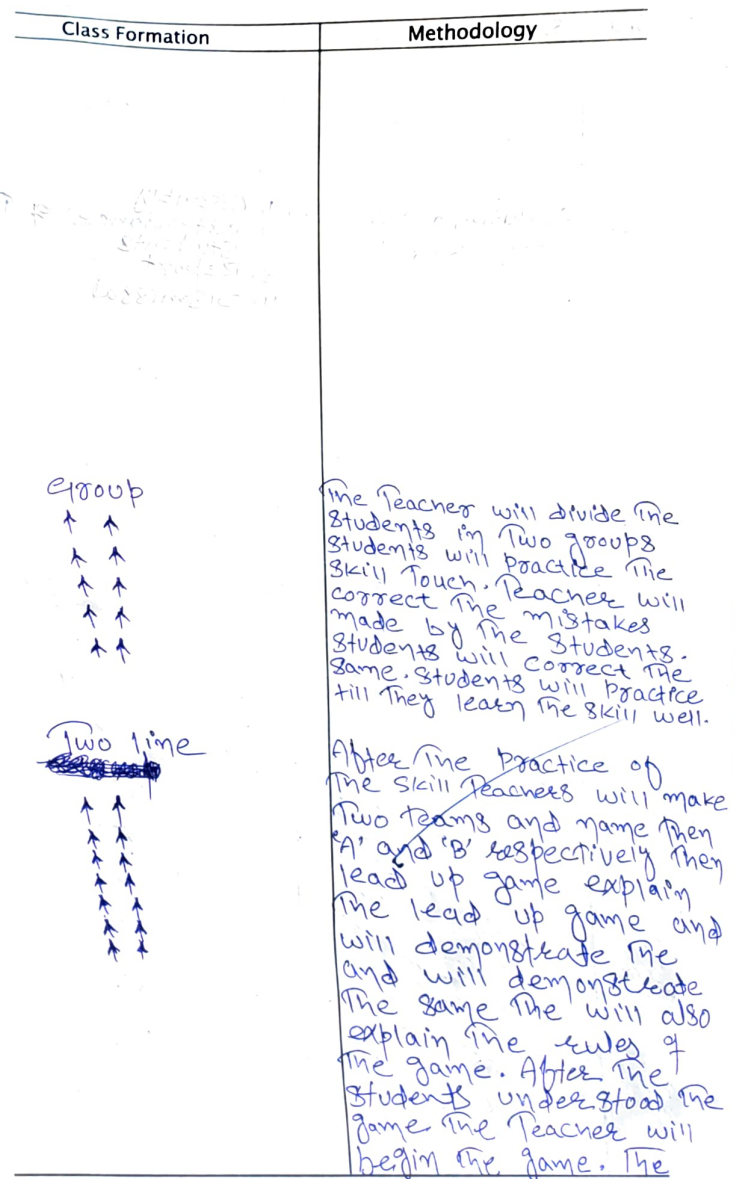 Class Formation
Methodology
Group
The Teacher will divide The
Students in Two groups
Students will practice The
Skill Touch. Teacher will
correct The mistakes
made by The Students.
Students will correct The
same. Students will practice
till They learn The skill well.
Two line
After The practice of
The skill Teachers will make
Two teams and name Then
'A' and 'B' respectively Then
lead up game explain
The lead up game and
will demonstrate The
and will demonstrate
The same The will also
explain The rules of
The game. After The
Students understood The
game The Teacher will
begin The game. The